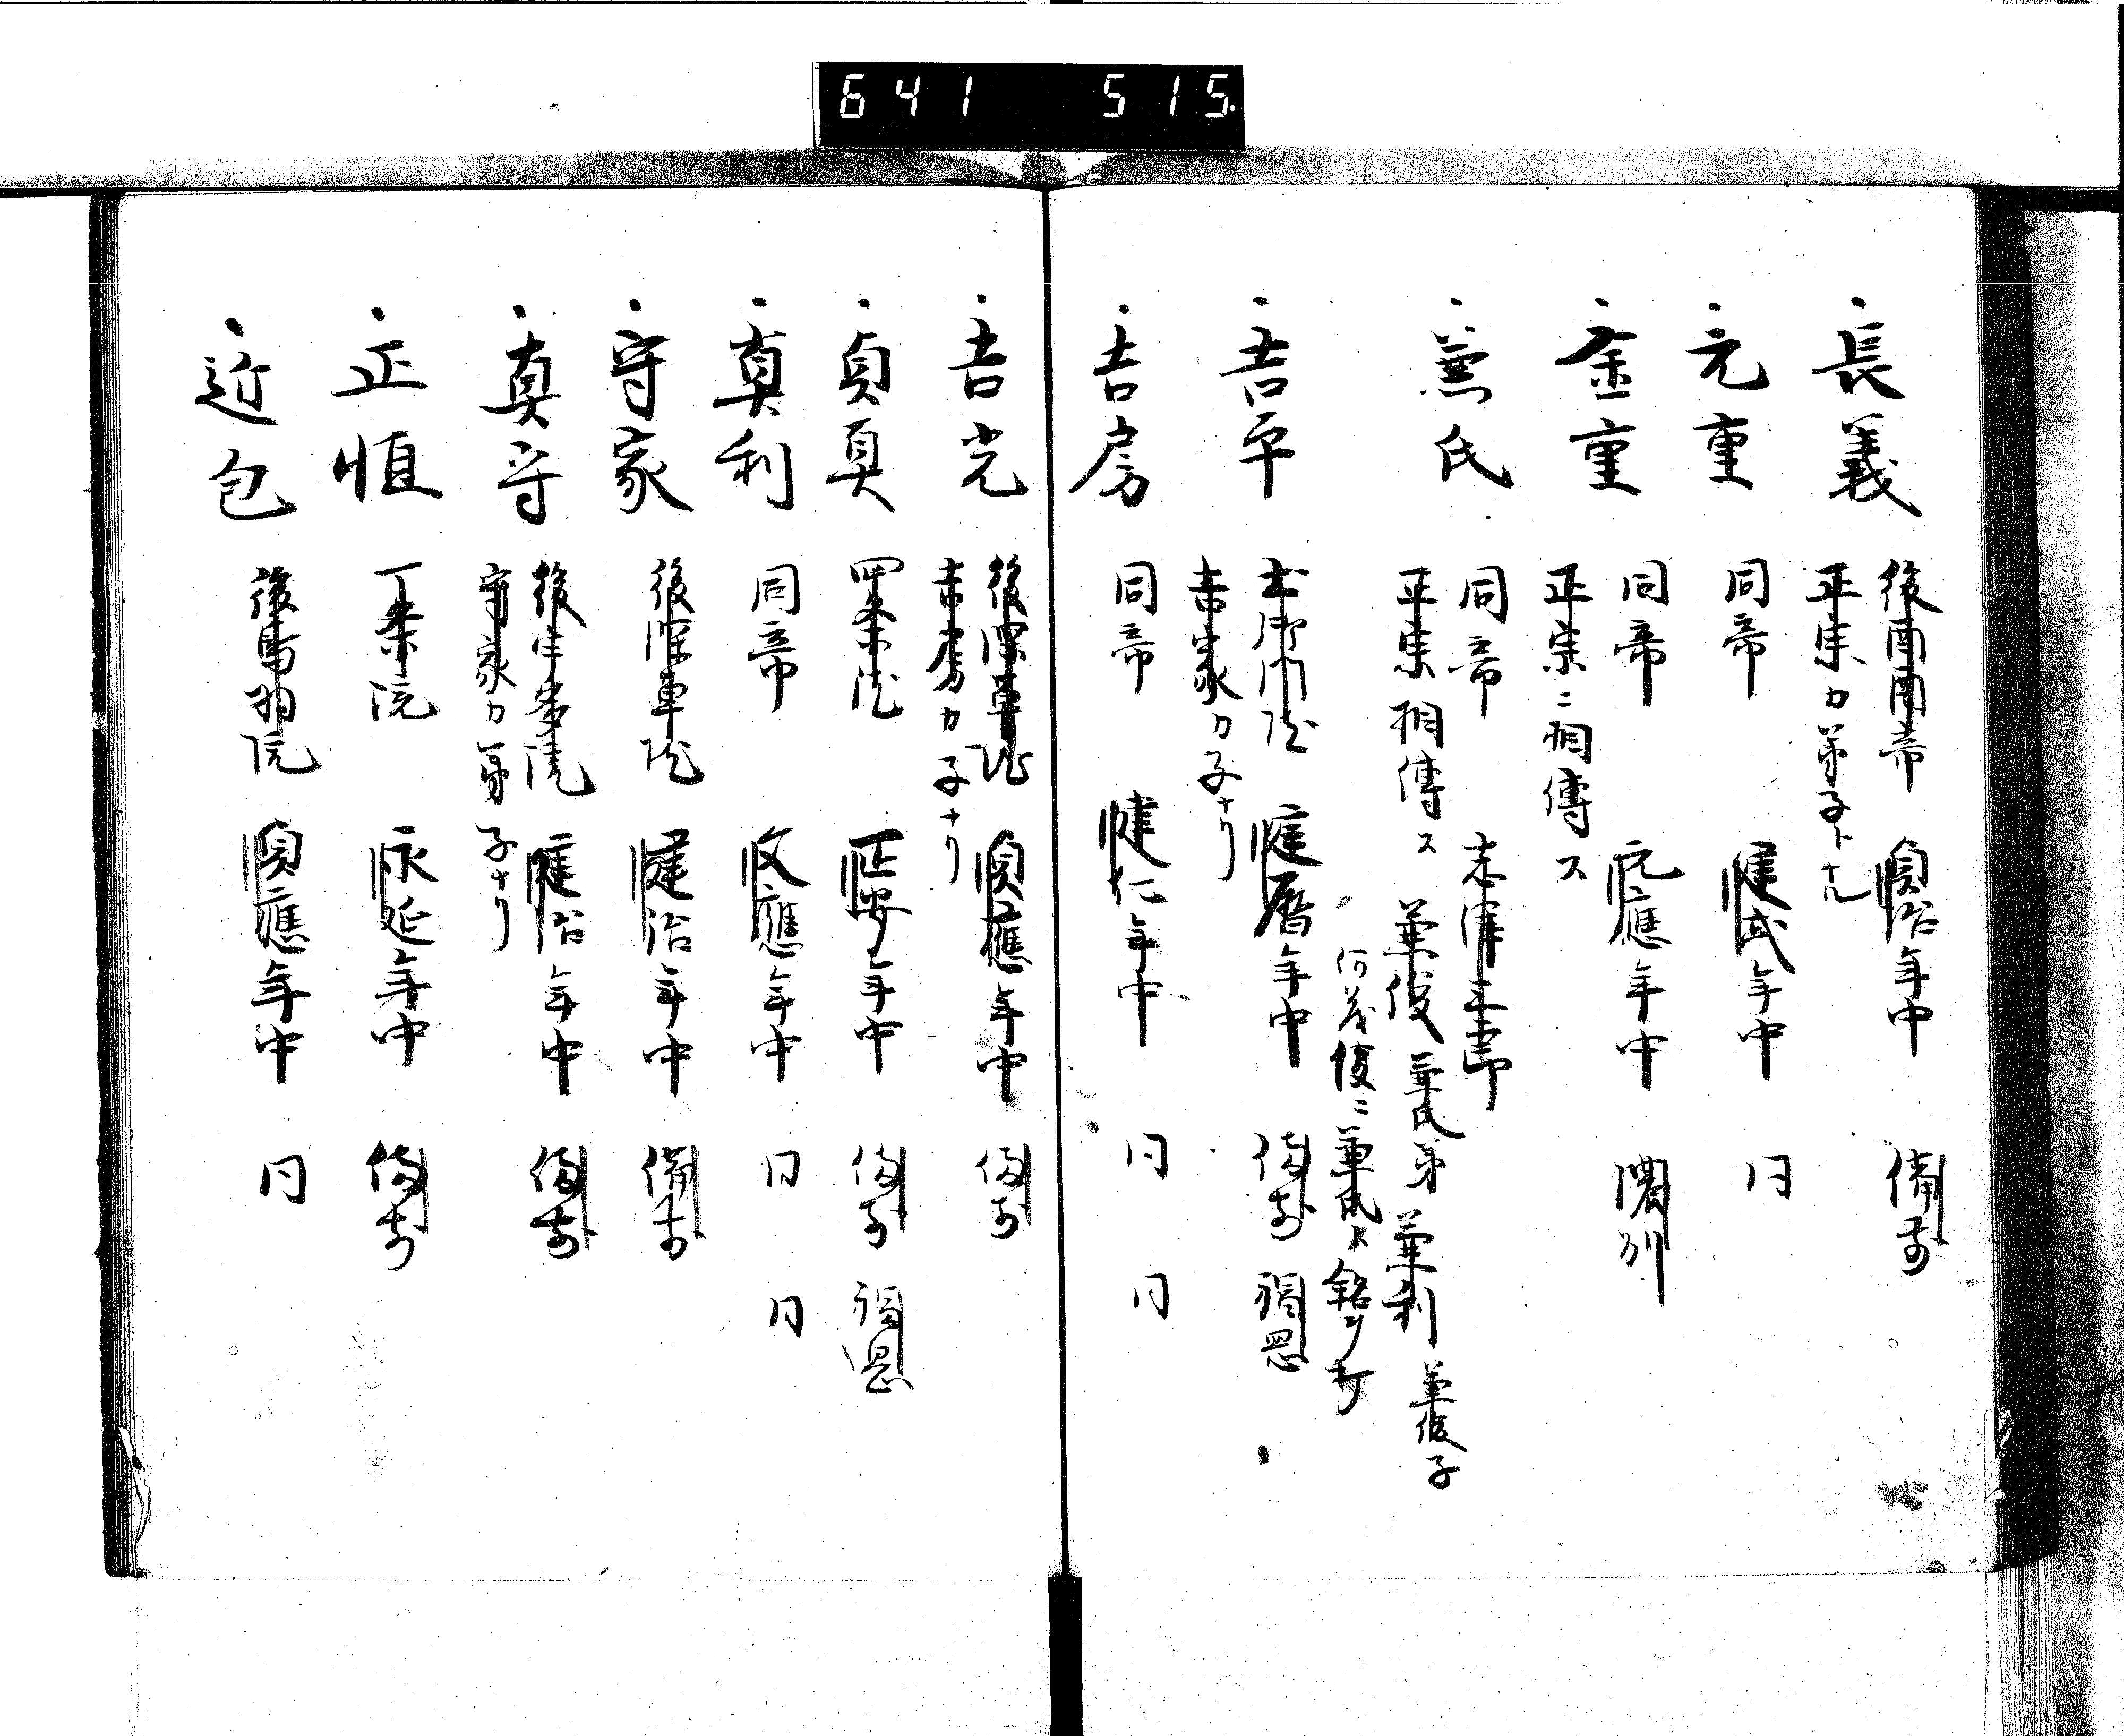 641 515
・長義 後醍醐帝 貞治年中 備前
正宗カ弟子ト云
・元重 同帝 建武年中 同
・金重 同帝 元應年中 濃州
正宗ニ相傳ス
・兼氏 同帝 志津三郎
正宗相傳ス 兼俊 兼氏弟 兼利 兼俊子
何茂後ニ兼氏ト銘ヲ打
・吉平 土御門院 建暦年中 備前 福岡
吉家カ子ナリ
・吉房 同帝 建仁年中 同 同
・吉光 後深草院 貞應年中 備前
吉房カ子ナリ
・貞真 四条院 正安年中 備前 福岡
・真利 同帝 文應年中 同 同
・守家 後深草院 建治年中 備前
・真守 後宇多院 建治年中 備前
守家カ弟子ナリ
・正恒 一条院 永延年中 備前
・近包 後鳥羽院 貞應年中 同